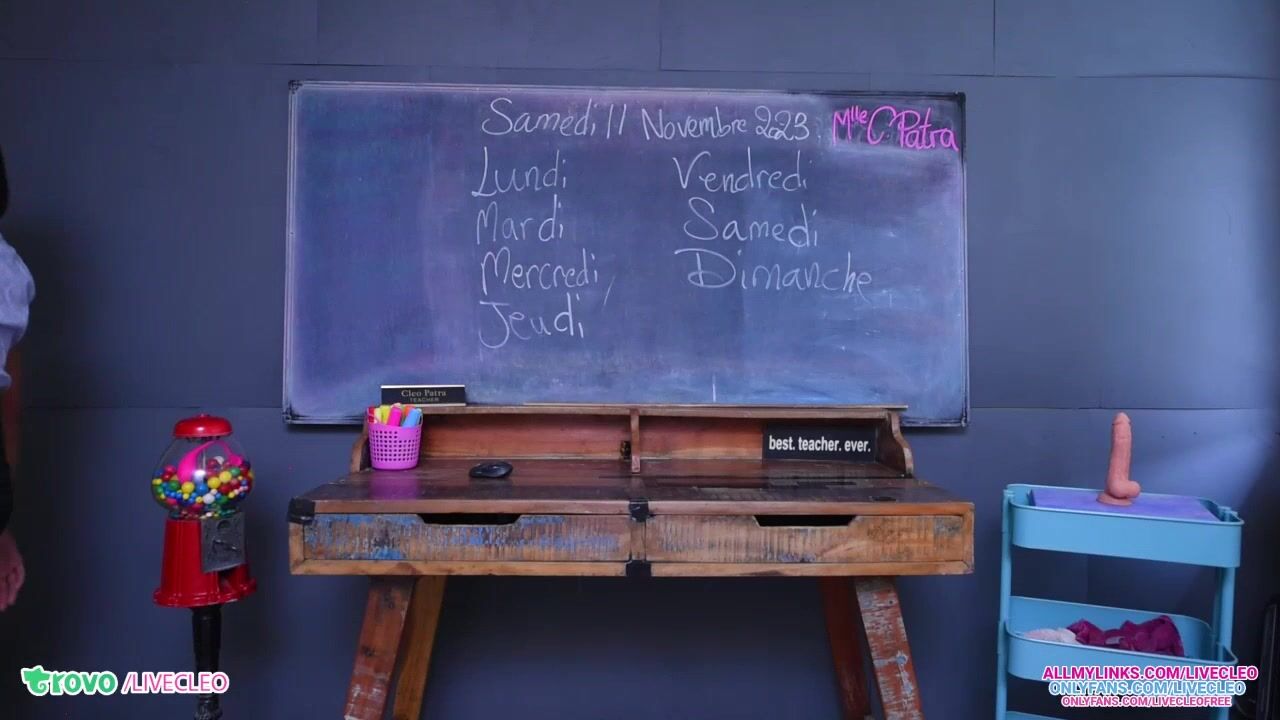 Samedi 11 Novembre 2023. Mlle C. Patra
Lundi
Mardi
Mercredi
Jeudi
Vendredi
Samedi
Dimanche
Cleo Patra
TEACHER
best. teacher. ever.
trovo /LIVECLEO
ALLMYLINKS.COM/LIVECLEO
ONLYFANS.COM/LIVECLEO
ONLYFANS.COM/LIVECLEOFREE